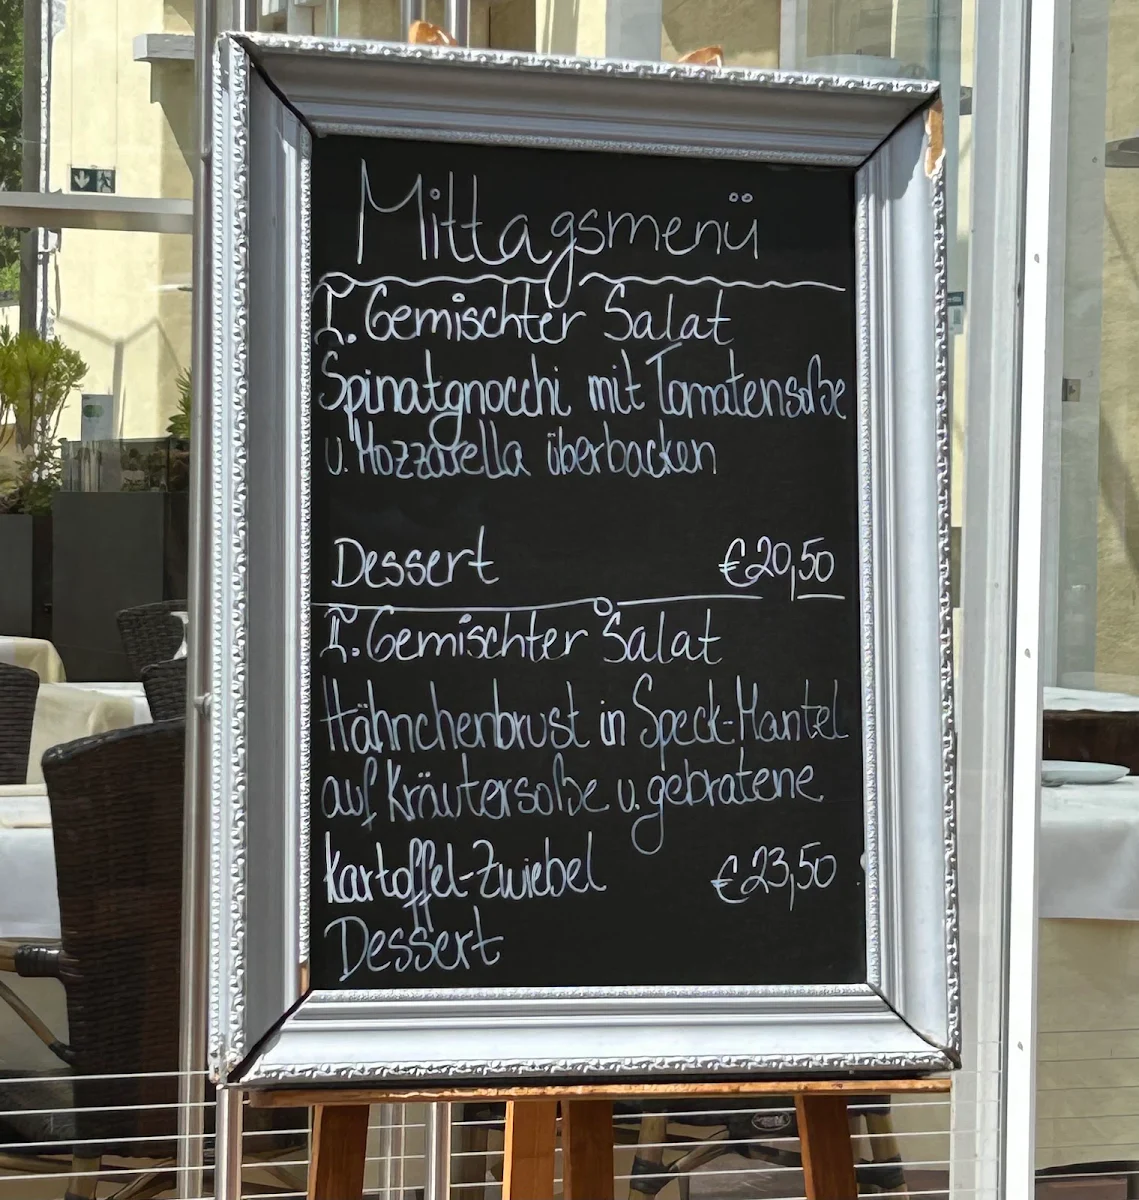 Mittagsmenü
I. Gemischter Salat
Spinatgnocchi mit Tomatensoße
u. Mozzarella überbacken
Dessert €20,50
II. Gemischter Salat
Hähnchenbrust in Speck-Mantel
auf Kräutersoße u. gebratene
Kartoffel-Zwiebel €23,50
Dessert